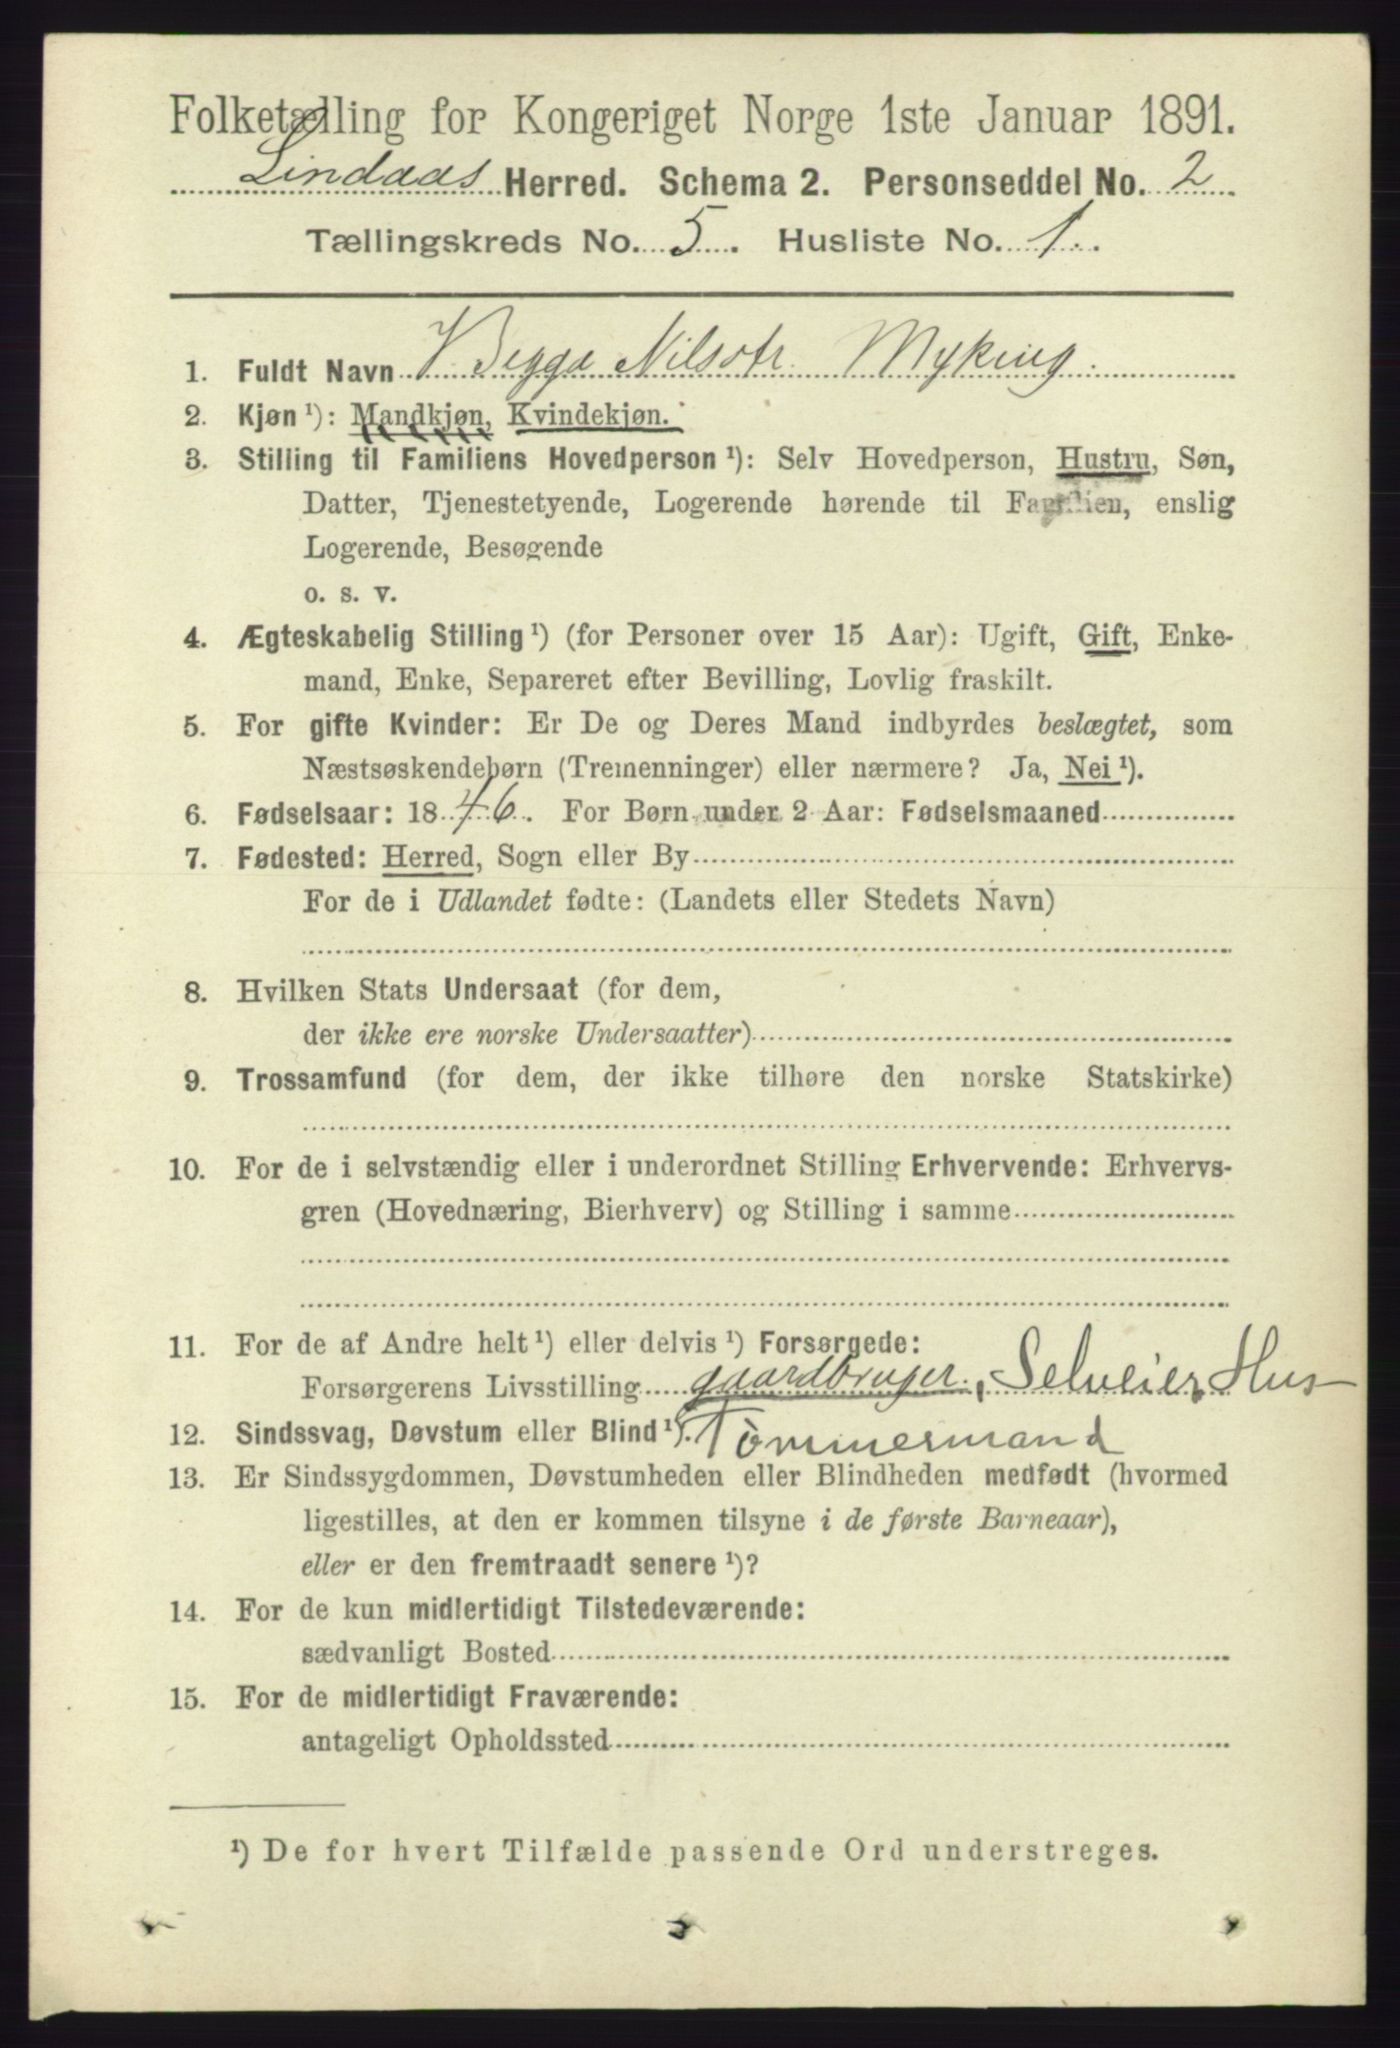 Folketælling for Kongeriget Norge 1ste Januar 1891.
Lindaas Herred. Schema 2. Personseddel No. 2
Tællingskreds No. 5. Husliste No. 1.
1. Fuldt Navn Begga Nilsdtr. Myking.
2. Kjøn ¹): Mandkjøn, Kvindekjøn.
3. Stilling til Familiens Hovedperson ¹): Selv Hovedperson, Hustru, Søn,
Datter, Tjenestetyende, Logerende hørende til Familien, enslig
Logerende, Besøgende
o. s. v.
4. Ægteskabelig Stilling ¹) (for Personer over 15 Aar): Ugift, Gift, Enke-
mand, Enke, Separeret efter Bevilling, Lovlig fraskilt.
5. For gifte Kvinder: Er De og Deres Mand indbyrdes beslægtet, som
Næstsøskendebørn (Tremenninger) eller nærmere? Ja, Nei ¹).
6. Fødselsaar: 1846. For Børn under 2 Aar: Fødselsmaaned
7. Fødested: Herred, Sogn eller By
For de i Udlandet fødte: (Landets eller Stedets Navn)
8. Hvilken Stats Undersaat (for dem,
der ikke ere norske Undersaatter)
9. Trossamfund (for dem, der ikke tilhøre den norske Statskirke)
10. For de i selvstændig eller i underordnet Stilling Erhvervende: Erhvervs-
gren (Hovednæring, Bierhverv) og Stilling i samme
11. For de af Andre helt ¹) eller delvis ¹) Forsørgede:
Forsørgerens Livsstilling gaardbruger, Selveier, Hus
12. Sindssvag, Døvstum eller Blind ¹). Tömmermand
13. Er Sindssygdommen, Døvstumheden eller Blindheden medfødt (hvormed
ligestilles, at den er kommen tilsyne i de første Barneaar),
eller er den fremtraadt senere ¹)?
14. For de kun midlertidigt Tilstedeværende:
sædvanligt Bosted
15. For de midlertidigt Fraværende:
antageligt Opholdssted
¹) De for hvert Tilfælde passende Ord understreges.